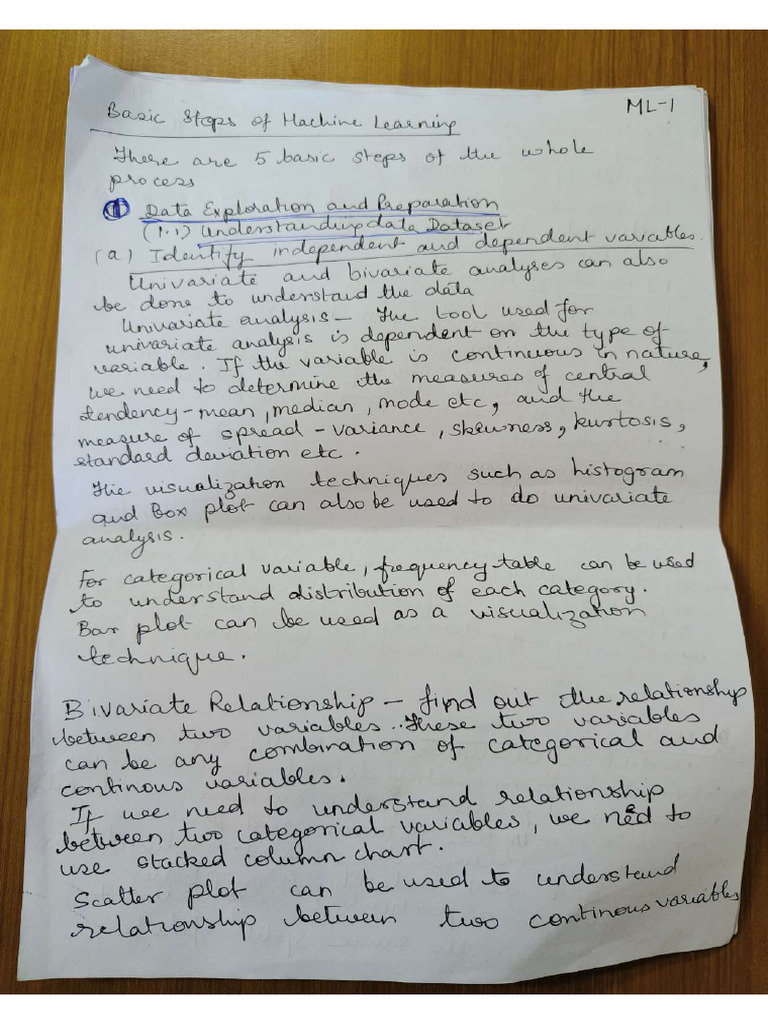 ML-1
Basic Steps of Machine Learning
There are 5 basic steps of the whole
process
1 Data Exploration and Preparation
(1.1) Understanding data Dataset
(a) Identify independent and dependent variables.
Univariate and bivariate analyses can also
be done to understand the data
Univariate analysis - The tool used for
univariate analysis is dependent on the type of
variable. If the variable is continuous in nature,
we need to determine the measures of central
tendency - mean, median, mode etc, and the
measure of spread - variance, skewness, kurtosis,
standard deviation etc.
The visualization techniques such as histogram
and Box plot can also be used to do univariate
analysis.
For categorical variable, frequency table can be used
to understand distribution of each category.
Bar plot can be used as a visualization
technique.
Bivariate Relationship - find out the relationship
between two variables. These two variables
can be any combination of categorical and
continous variables.
If we need to understand relationship
between two categorical variables, we need to
use stacked column chart.
Scatter plot can be used to understand
relationship between two continous variables